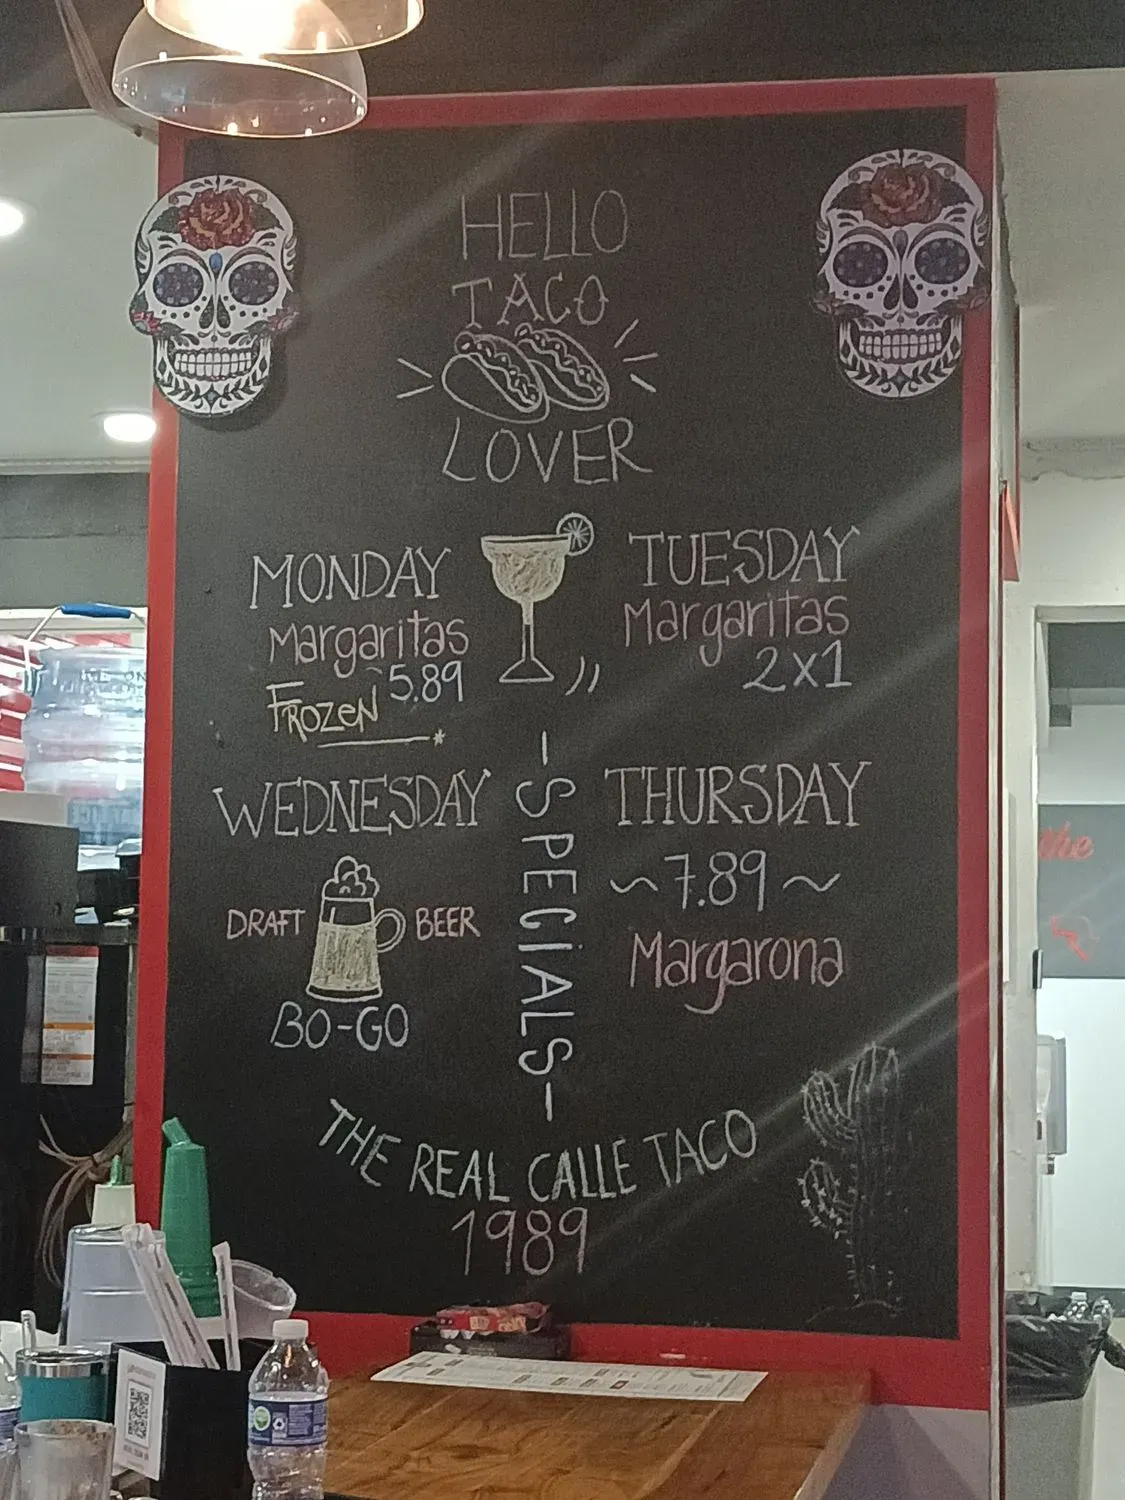 HELLO
TACO
LOVER
MONDAY
Margaritas
5.89
FROZEN
TUESDAY
Margaritas
2x1
-SPECIALS-
WEDNESDAY
DRAFT BEER
BO-GO
THURSDAY
~7.89~
Margarona
THE REAL CALLE TACO
1989
the